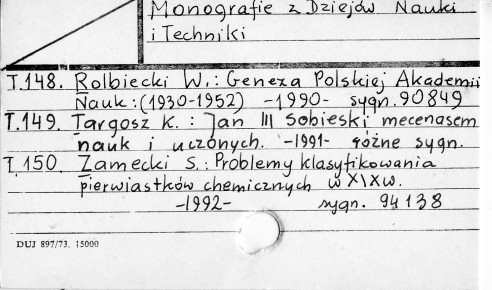 Monografie z Dziejów Nauki
i Techniki
T.148. Rolbiecki W.: Geneza Polskiej Akademii
Nauk: (1930-1952) -1990- sygn. 90849
T.149. Targosz K.: Jan III Sobieski mecenasem
nauk i uczonych. -1991- różne sygn.
T 150 Zamecki S.: Problemy klasyfikowania
pierwiastków chemicznych w XIX w.
-1992- sygn. 94138
DUJ 897/73. 15000